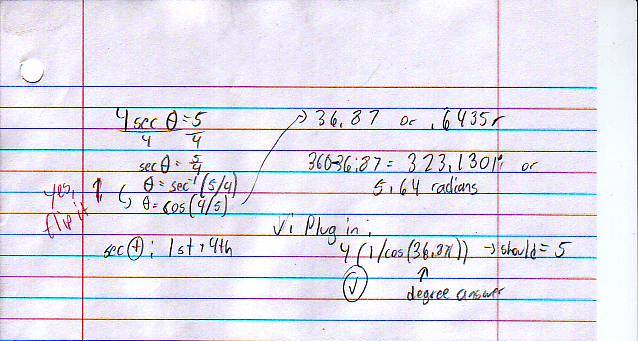 4 sec θ = 5
4 4
sec θ = 5/4
θ = sec⁻¹(5/4)
θ = cos(4/5)
yes, flip it ↑
sec (+): 1st + 4th
→ 36.87 or .6435r
360-36.87 = 323.1301° or
5.64 radians
√: Plug in:
4(1/cos(36.87)) → should = 5
↑
degree answer
✓